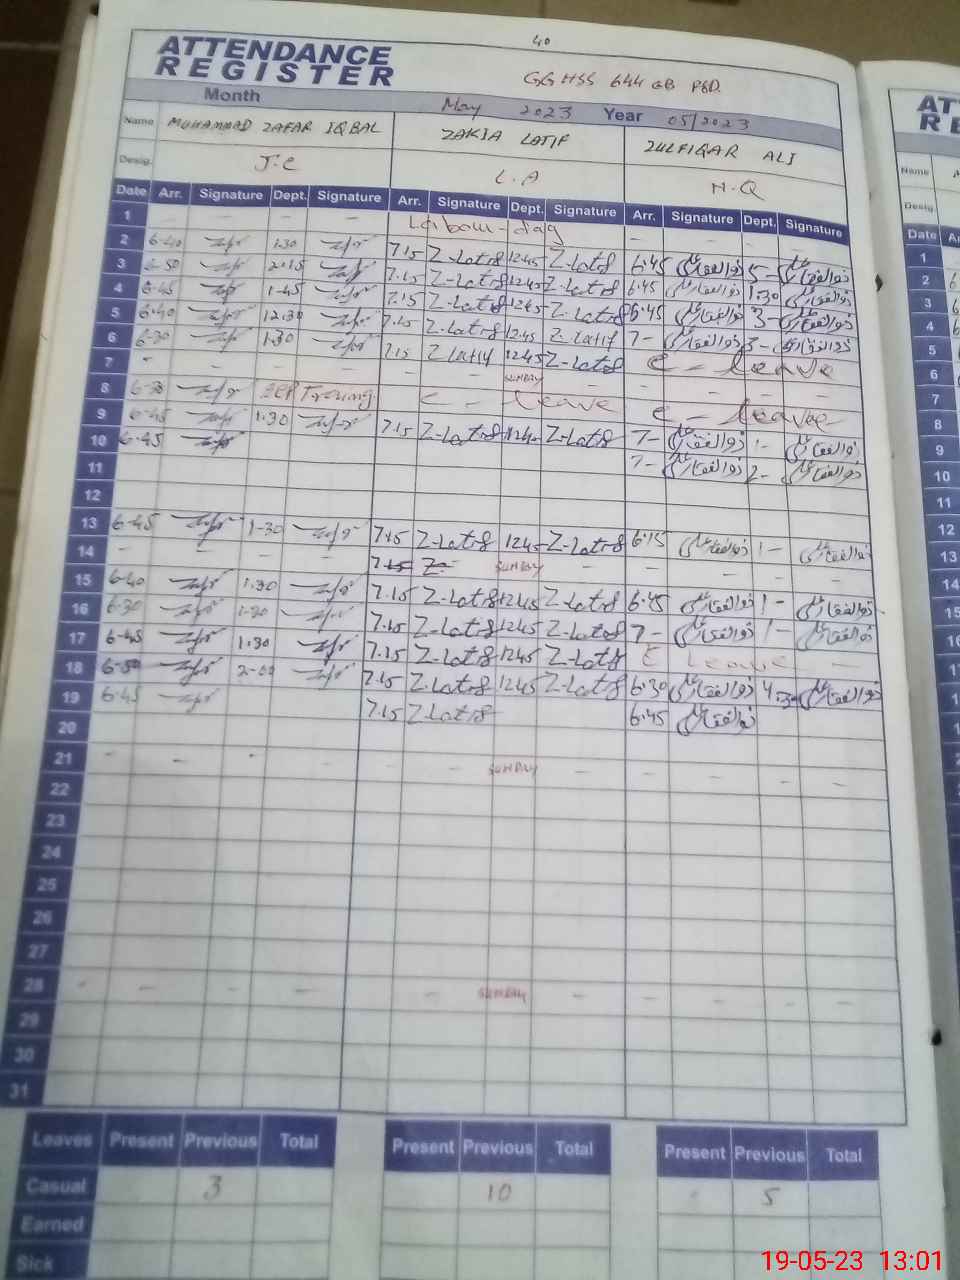 40
ATTENDANCE
REGISTER
GGHSS 644 GB FSD.
Month May 2023 Year 05/2023
Name MUHAMMAD ZAFAR IQBAL ZAKIA LATIF ZULFIQAR ALI
Desig. J.C L.A N.Q
Date Arr. Signature Dept. Signature Arr. Signature Dept. Signature Arr. Signature Dept. Signature
1 - - - Labour-day - - -
2 6-40 1.30 7.15 Z-Latif 1245 Z-Latif 6.45 ذوالفقار علی 5- ذوالفقار علی
3 6-50 2.15 7.15 Z-Latif 1245 Z-Latif 6.45 ذوالفقار علی 1.30 ذوالفقار علی
4 6-45 1-45 7.15 Z-Latif 1245 Z-Latif 6.45 ذوالفقار علی 3- ذوالفقار علی
5 6-40 12.30 7.15 Z-Latif 1245 Z-Latif 7- ذوالفقار علی 3- ذوالفقار علی
6 6-30 1.30 7.15 Z Latif 1245 Z-Latif C - Leave
7 - - - - - SUNDAY - - - -
8 6-30 Training. C - Leave C - Leave
9 6-45 1.30 7.15 Z-Latif 1245 Z-Latif 7- ذوالفقار علی 1- ذوالفقار علی
10 6-45 7- ذوالفقار علی 2- ذوالفقار علی
11
12
13 6-45 1-30 7.15 Z-Latif 1245 Z-Latif 6.15 ذوالفقار علی 1- ذوالفقار علی
14 - - - 7.15 Z- SUNDAY - - - -
15 6-40 1.30 7.15 Z-Latif 1245 Z-Latif 6.45 ذوالفقار علی 1- ذوالفقار علی
16 6-30 1-30 7.15 Z-Latif 1245 Z-Latif 7- ذوالفقار علی 1- ذوالفقار علی
17 6-45 1.30 7.15 Z-Latif 1245 Z-Latif C Leave -
18 6-50 2-00 7.15 Z-Latif 1245 Z-Latif 6.30 ذوالفقار علی 4.30 ذوالفقار علی
19 6-45 7.15 Z-Latif 6.45 ذوالفقار علی
20
21 - - - - - - SUNDAY - - - -
22
23
24
25
26
27
28 - - - - - SUNDAY - - - -
29
30
31
Leaves Present Previous Total Present Previous Total Present Previous Total
Casual 3 10 5
Earned
Sick
AT
RE
Name
Desig
Date A
1
2 6
3
4
5
6
7
8
9
10
11
12
13
14
15
16
19-05-23 13:01